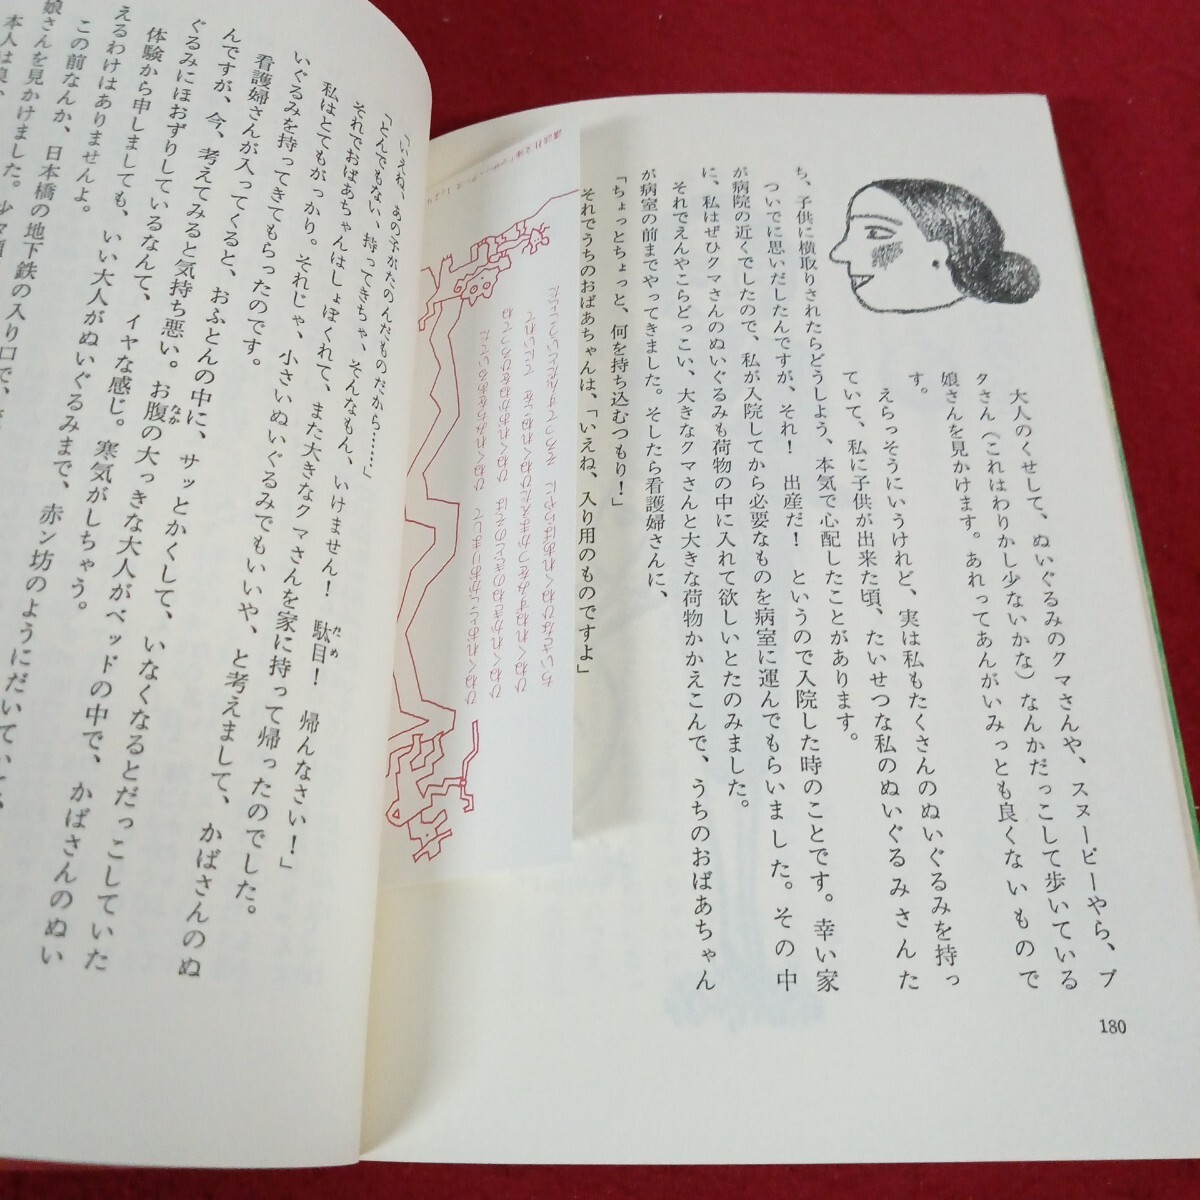 大人のくせして、ぬいぐるみのクマさんや、スヌーピーやら、ブ
クさん（これはわりかし少ないかな）なんかだっこして歩いている
娘さんを見かけます。あれってあんがいみっとも良くないもので
す。
えらっそうにいうけれど、実は私もたくさんのぬいぐるみを持っ
ていて、私に子供が出来た頃、たいせつな私のぬいぐるみさんた
ち、子供に横取りされたらどうしよう、本気で心配したことがあります。
ついでに思いだしたんですが、それ！　出産だ！　というので入院した時のことです。幸い家
が病院の近くでしたので、私が入院してから必要なものを病室に運んでもらいました。その中
に、私はぜひクマさんのぬいぐるみも荷物の中に入れて欲しいとたのみました。
それでえんやこらどっこい、大きなクマさんと大きな荷物かかえこんで、うちのおばあちゃん
が病室の前までやってきました。そしたら看護婦さんに、
「ちょっとちょっと、何を持ち込むつもり！」
それでうちのおばあちゃんは、「いえね、入り用のものですよ」
180
ひねくれおとこがおりまして　ひねくれみちをあるいてた
ひねくれかきねのきどのそば　ひねくれおかねをひろってね
ひねくれねずみをつかまえたひねくれねこを　てにいれて
ちいさなひねくれあばらやに　そろってすんだということだ
「いえね、あの子がたのんだものだから……」
「とんでもない、持ってきちゃ、そんなもん、いけません！　駄目！　帰んなさい！」
ため
それでおばあちゃんはしょぼくれて、また大きなクマさんを家に持って帰ったのでした。
私はとてもがっかり。それじゃ、小さいぬいぐるみでもいいや、と考えまして、かばさんのぬ
いぐるみを持ってきてもらったのです。
看護婦さんが入ってくると、おふとんの中に、サッとかくして、いなくなるとだっこしていた
んですが、今、考えてみると気持ち悪い。お腹の大っきな大人がベッドの中で、かばさんのぬい
なか
ぐるみにほおずりしているなんて、イヤな感じ。寒気がしちゃう。
体験から申しましても、いい大人がぬいぐるみまで、赤ン坊のようにだいていて、
えるわけはありませんよ。
この前なんか、日本橋の地下鉄の入り口で、
娘さんを見かけました。
本人は良